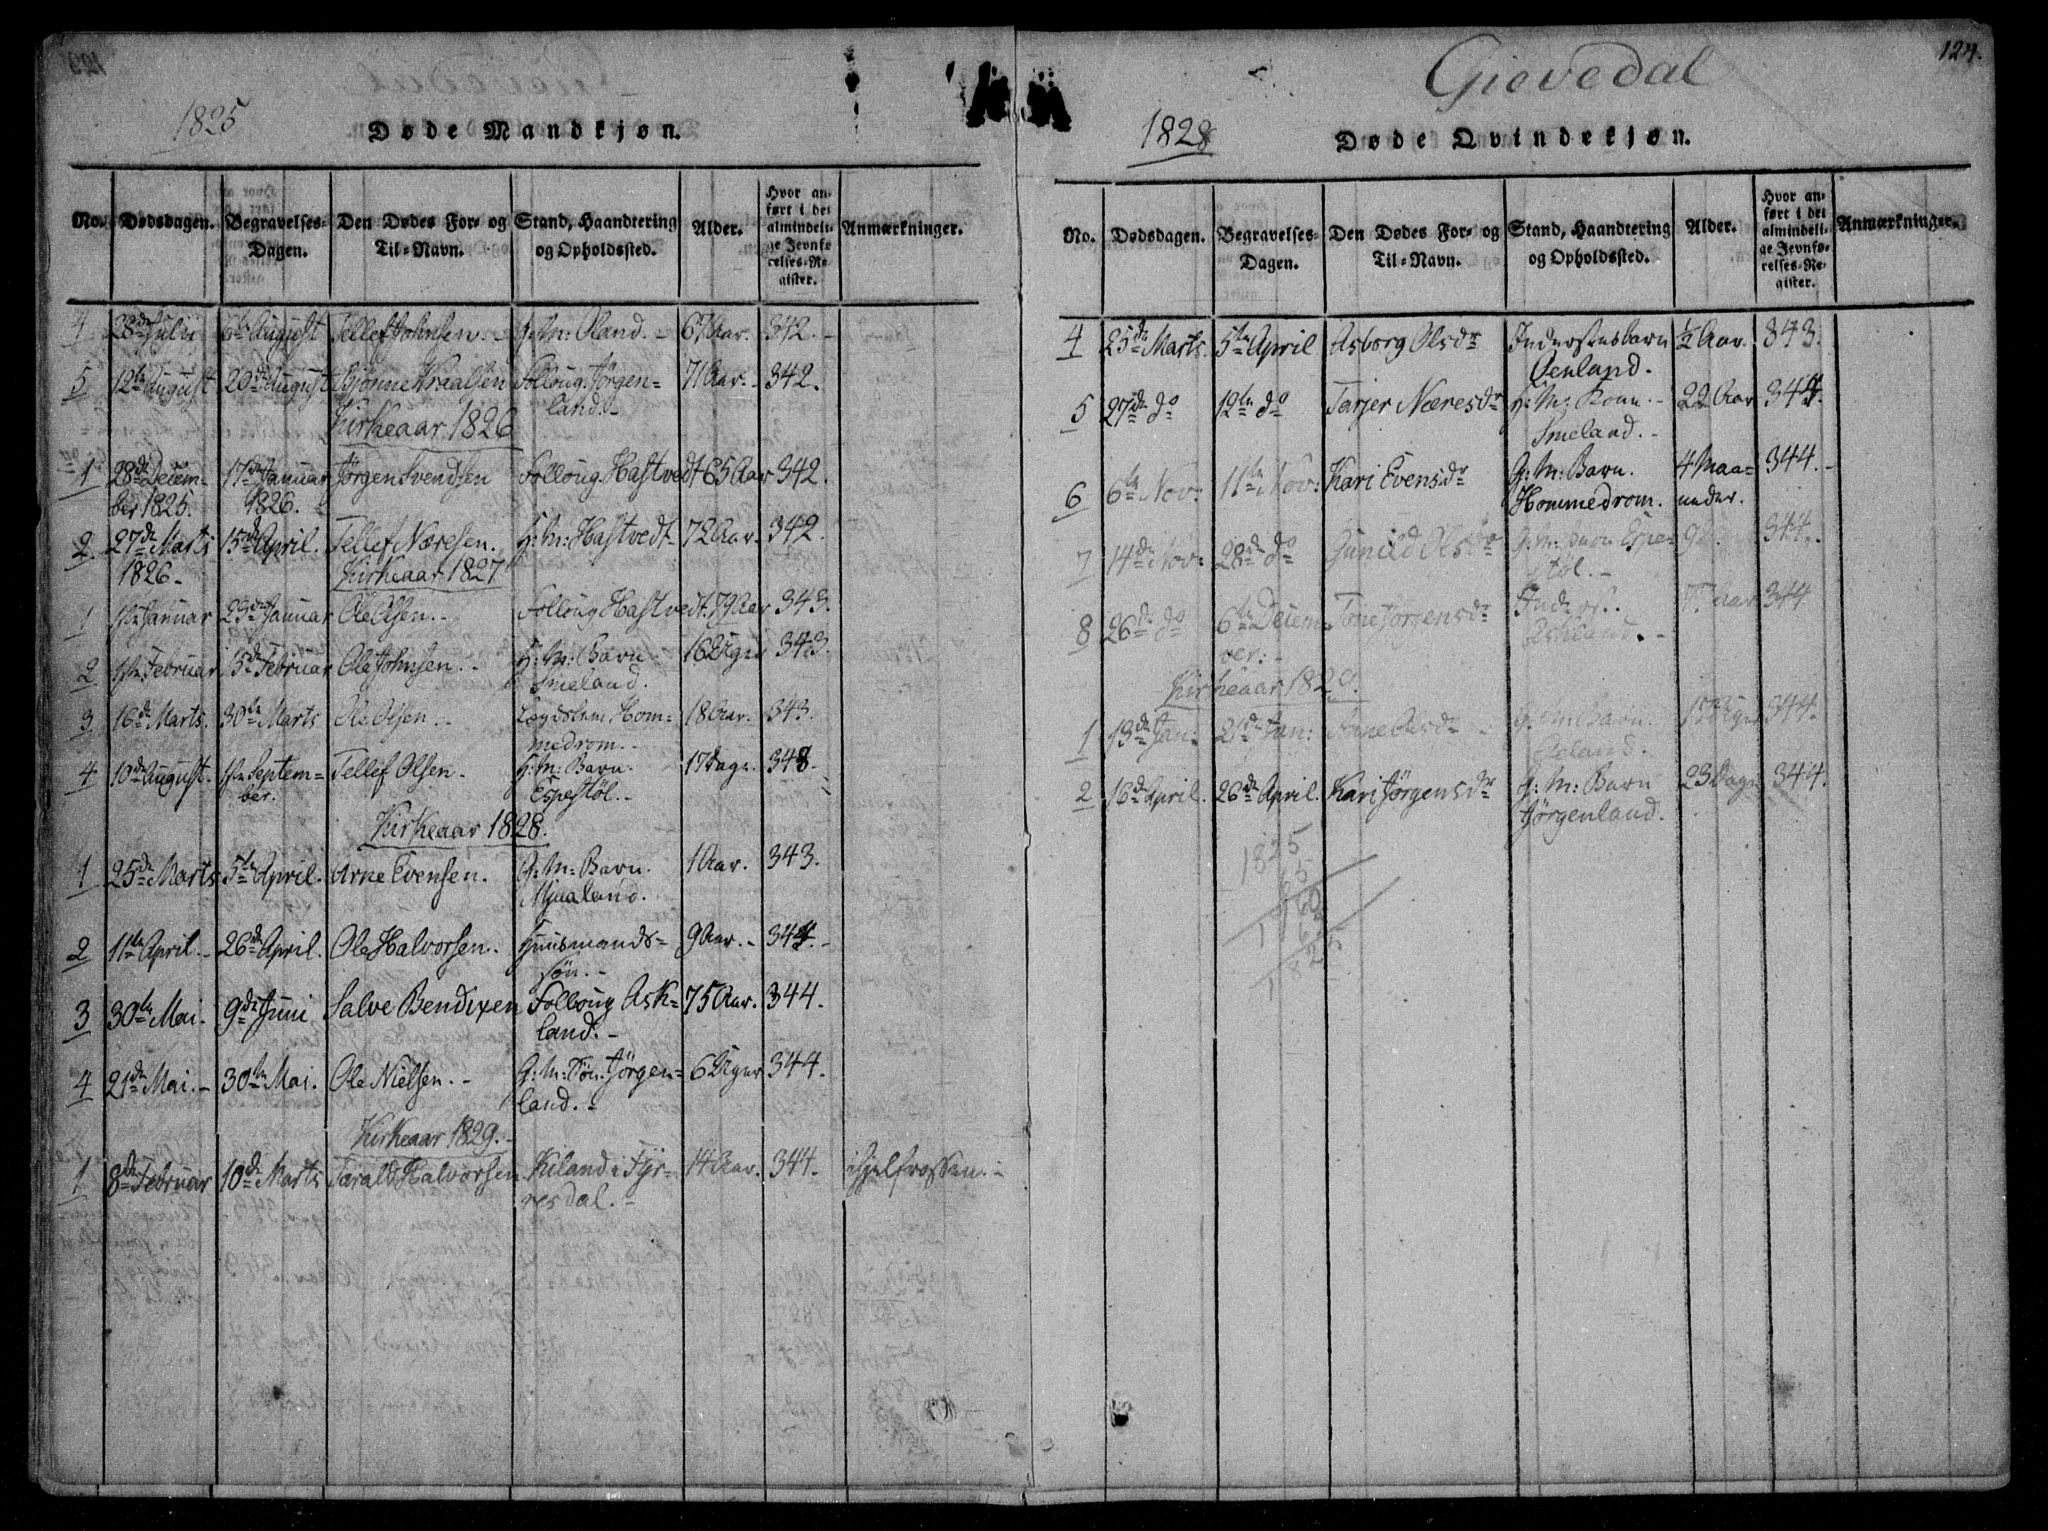 1825
Døde Mandkjøn.
No. Dødsdagen. Begravelses-Dagen. Den Dødes For- og Til-Navn. Stand, Haandtering og Opholdssted. Alder. Hvor anført i det almindelige Jevnførelses-Register. Anmærkninger.
4 28de Julii 6te August Tellef Johnsen. G: M: Oland. 67 Aar. 342.
5 12te August 20de August Kraalsen Folloug. Jørgen- 71 Aar. 342.
land.
Kirkeaar 1826
1 28de Decem- 17de Januar Jørgen Svendsen Folloug Hastvedt 65 Aar 342.
ber 1825. 1826.
2. 27de Marts 15de April. Tellef Næresen. H: M: Hastvedt 72 Aar. 342.
1826.
Kirkeaar 1827
1 1ste Januar 23de Januar Ole Olsen. Folloug Hastvedt. 79 Aar 343.
2 1ste Februar 15de Februar Ole Johnsen. H: M: Barn 16 Uger 343.
Smeland.
3 16de Marts. 30te Marts Ole Olsen. Lægdslem Hom- 18 Aar. 343.
medrom.
4 10de August. 1ste Septem- Tellef Olsen. H: M: Barn. 17 Dage. 343.
ber. Espestøl.
Kirkeaar 1828.
1 25de Marts 5te April. Arne Evensen. G: M: Barn. 1 Aar. 343.
Mjaaland.
2 11te April. 26de April. Ole Halvorsen. Huusmands- 9 Aar. 344.
søn.
3 30te Mai. 9de Juni Salve Bendixen Folloug Ask- 75 Aar. 344.
land.
4 21de Mai. 30te Mai. Ole Nielsen. G: M: Søn. Jørgen- 6 Uger 344.
land.
Kirkeaar 1829.
1 8de Februar 10de Marts Tarald Halvorsen Kiland i Fyr- 14 Aar. 344. ihjelfrossen.
resdal.
124.
Gievedal
1828
Døde Qvindekjøn.
No. Dødsdagen. Begravelses-Dagen. Den Dødes For- og Til-Navn. Stand, Haandtering og Opholdssted. Alder. Hvor anført i det almindelige Jevnførelses-Register. Anmærkninger.
4 25de Marts. 5te April Asborg Olsdr Inderstesbarn ½ Aar. 343.
land.
5 27de do 12te do Tarjer Næresdr H: M: Kone. 22 Aar 344.
Smeland.
6 6te Nov: 11te Nov: Kari Evensdr G: M: Barn. 4 Maa- 344.
Hommedrom. neder.
7 14de Nov: 28de do Gunild Olsdr G: M: Barn Espe- 344.
støl.
8 26de do 6te Decem- Tone Jørgensdr Aar 344
ber: Askland.
Kirkeaar 1829.
1 13de Jan: 21de Jan: Olsdr G: M: Barn. Uger 344.
2 16de April. 26de April. Kari Jørgensdr G: M: Barn 23 Dage 344.
Jørgenland.
1825
65
1825